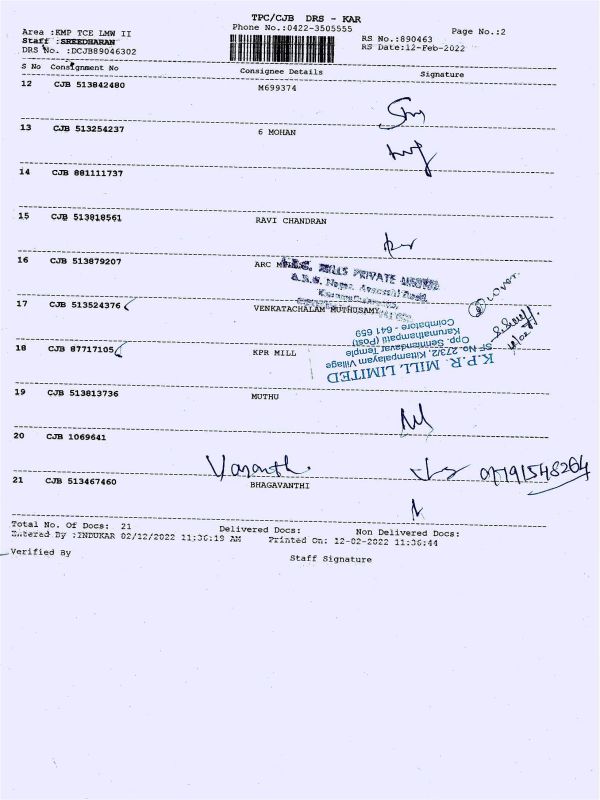 TPC/CJB DRS - KAR
Phone No.:0422-3505555
Page No.:2
Area :KMP TCE LMW II
RS No.:890463
Staff :SREEDHARAN
RS Date:12-Feb-2022
DRS No. :DCJB89046302
S No Consignment No Consignee Details Signature
12 CJB 513842480 M699374
13 CJB 513254237 6 MOHAN
14 CJB 881111737
15 CJB 513818561 RAVI CHANDRAN
16 CJB 513879207 ARC
MILLS PRIVATE LIMITED
17 CJB 513524376 VENKATACHALAM MUTHUSAMY
18 CJB 87717105 KPR MILL
K.P.R. MILL LIMITED
SF No. 273/2, Kittampalayam Village
Opp. Senniandavar Temple
Karumathampatti (Post)
Coimbatore - 641 659
19 CJB 513813736 MUTHU
20 CJB 1069641
Vasanth.
21 CJB 513467460 BHAGAVANTHI
Total No. Of Docs: 21 Delivered Docs: Non Delivered Docs:
Entered By :INDUKAR 02/12/2022 11:36:19 AM Printed On: 12-02-2022 11:36:44
Verified By Staff Signature